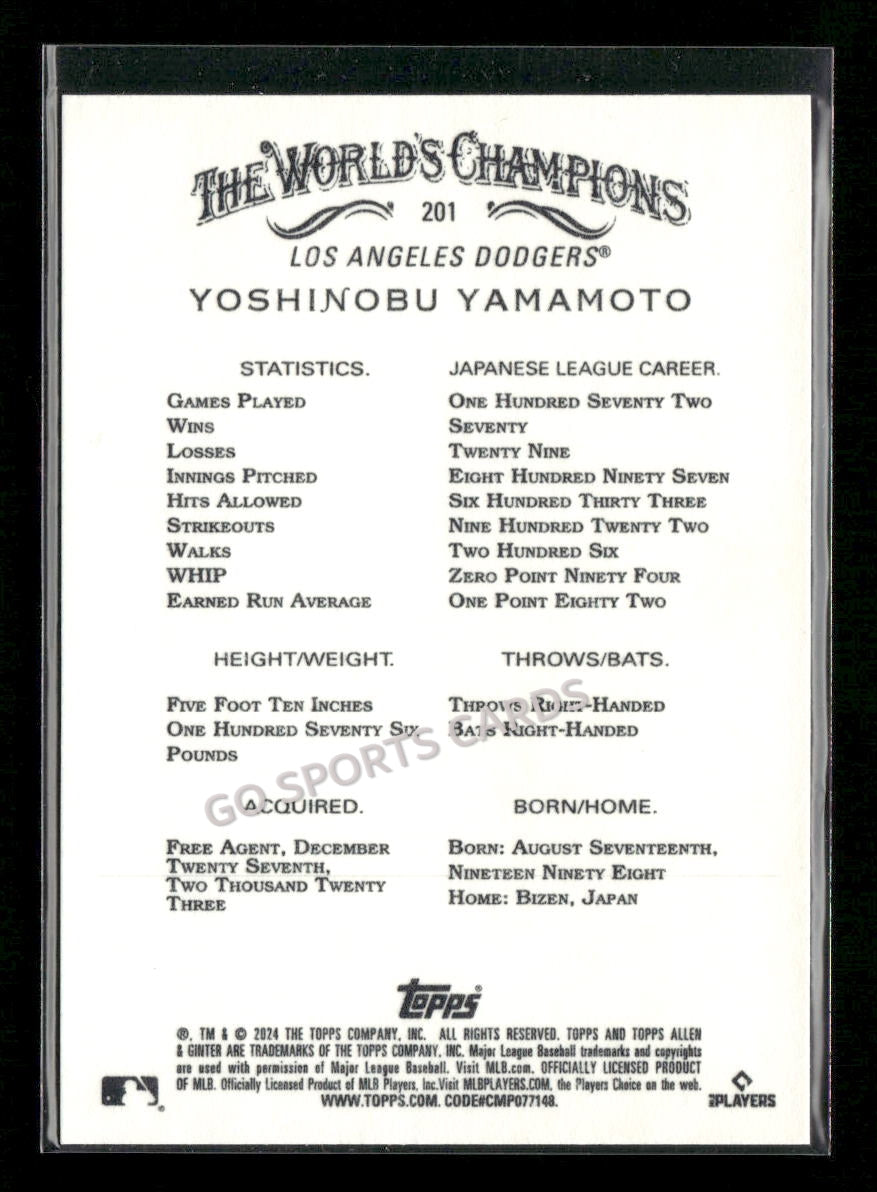 THE WORLD'S CHAMPIONS
201
LOS ANGELES DODGERS®
YOSHINOBU YAMAMOTO
STATISTICS. JAPANESE LEAGUE CAREER.
GAMES PLAYED ONE HUNDRED SEVENTY TWO
WINS SEVENTY
LOSSES TWENTY NINE
INNINGS PITCHED EIGHT HUNDRED NINETY SEVEN
HITS ALLOWED SIX HUNDRED THIRTY THREE
STRIKEOUTS NINE HUNDRED TWENTY TWO
WALKS TWO HUNDRED SIX
WHIP ZERO POINT NINETY FOUR
EARNED RUN AVERAGE ONE POINT EIGHTY TWO
HEIGHT/WEIGHT.
FIVE FOOT TEN INCHES
ONE HUNDRED SEVENTY SIX
POUNDS
THROWS/BATS.
THROWS RIGHT-HANDED
BATS RIGHT-HANDED
GO SPORTS CARDS
ACQUIRED.
FREE AGENT, DECEMBER
TWENTY SEVENTH,
TWO THOUSAND TWENTY
THREE
BORN/HOME.
BORN: AUGUST SEVENTEENTH,
NINETEEN NINETY EIGHT
HOME: BIZEN, JAPAN
Topps®
®, TM & © 2024 THE TOPPS COMPANY, INC. ALL RIGHTS RESERVED. TOPPS AND TOPPS ALLEN
& GINTER ARE TRADEMARKS OF THE TOPPS COMPANY, INC. Major League Baseball trademarks and copyrights
are used with permission of Major League Baseball. Visit MLB.com. OFFICIALLY LICENSED PRODUCT
OF MLB. Officially Licensed Product of MLB Players, Inc.Visit MLBPLAYERS.COM, the Players Choice on the web.
WWW.TOPPS.COM. CODE#CMP077148.
PLAYERS